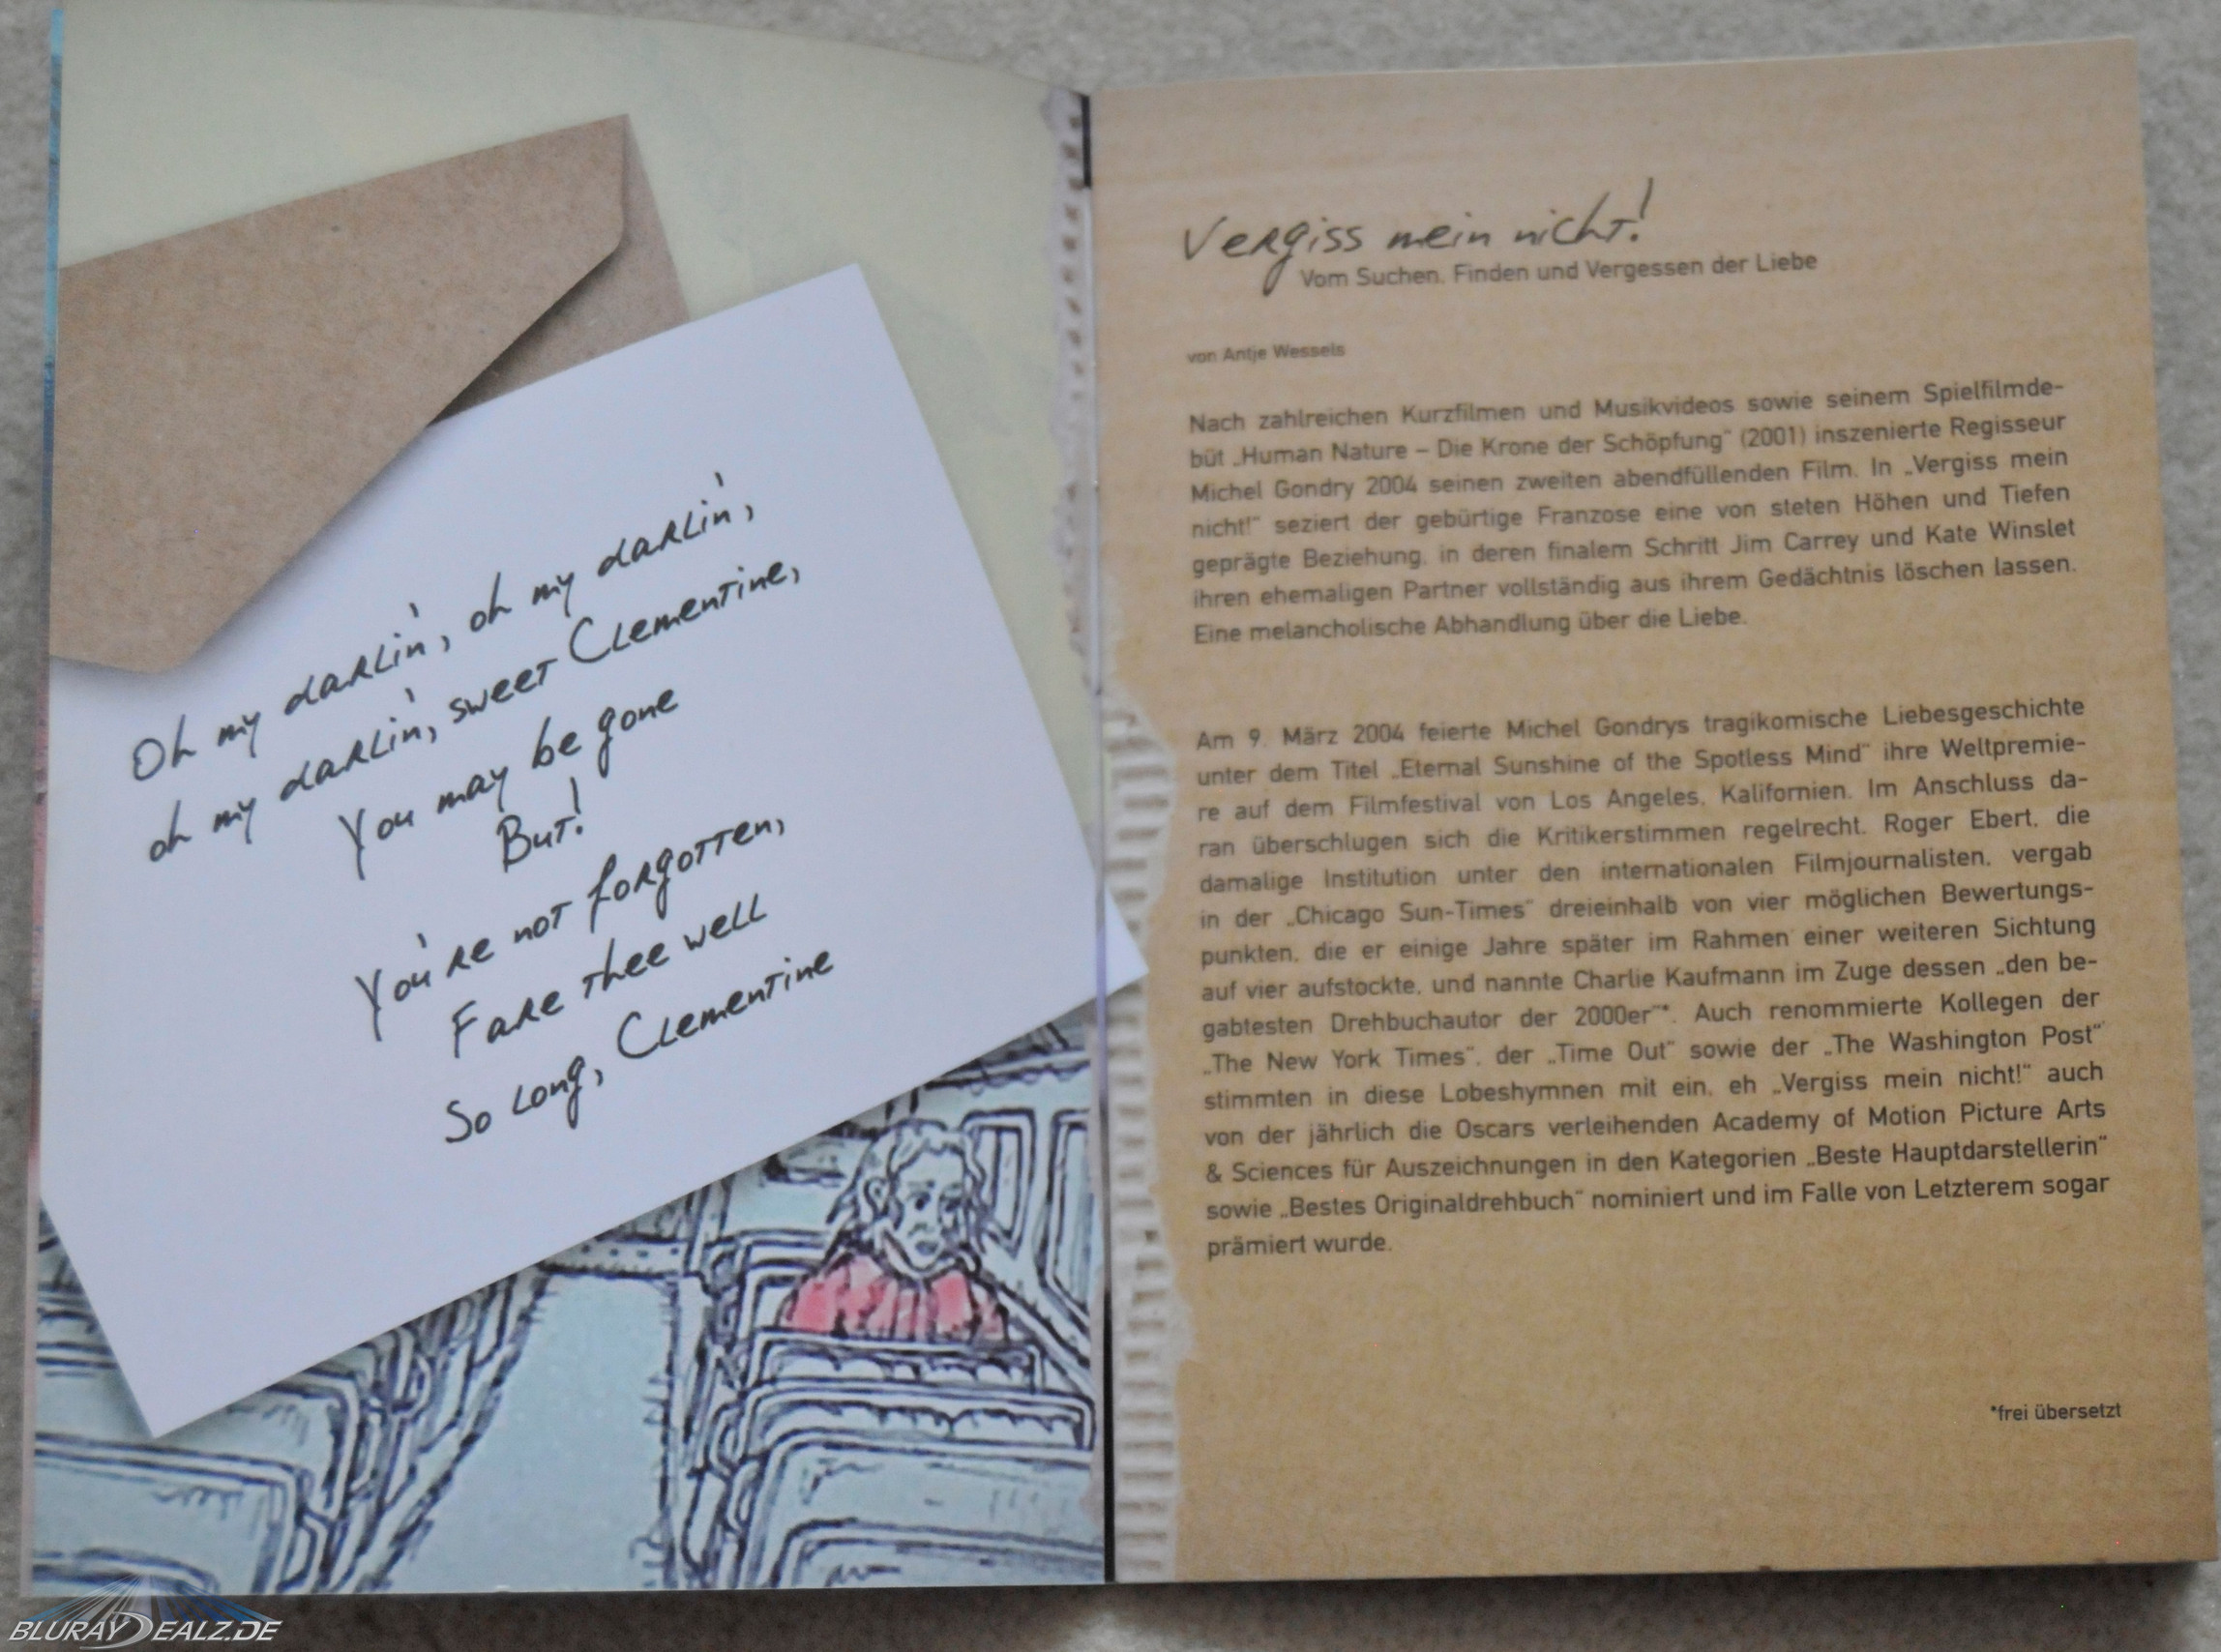 Oh my darlin', oh my darlin',
oh my darlin', sweet Clementine,
You may be gone
But!
You're not forgotten,
Fare thee well
So long, Clementine
Vergiss mein nicht!
Vom Suchen, Finden und Vergessen der Liebe
von Antje Wessels
Nach zahlreichen Kurzfilmen und Musikvideos sowie seinem Spielfilmde-
büt „Human Nature – Die Krone der Schöpfung“ (2001) inszenierte Regisseur
Michel Gondry 2004 seinen zweiten abendfüllenden Film. In „Vergiss mein
nicht!“ seziert der gebürtige Franzose eine von steten Höhen und Tiefen
geprägte Beziehung, in deren finalem Schritt Jim Carrey und Kate Winslet
ihren ehemaligen Partner vollständig aus ihrem Gedächtnis löschen lassen.
Eine melancholische Abhandlung über die Liebe.
Am 9. März 2004 feierte Michel Gondrys tragikomische Liebesgeschichte
unter dem Titel „Eternal Sunshine of the Spotless Mind“ ihre Weltpremie-
re auf dem Filmfestival von Los Angeles, Kalifornien. Im Anschluss da-
ran überschlugen sich die Kritikerstimmen regelrecht. Roger Ebert, die
damalige Institution unter den internationalen Filmjournalisten, vergab
in der „Chicago Sun-Times“ dreieinhalb von vier möglichen Bewertungs-
punkten, die er einige Jahre später im Rahmen einer weiteren Sichtung
auf vier aufstockte, und nannte Charlie Kaufmann im Zuge dessen „den be-
gabtesten Drehbuchautor der 2000er“*. Auch renommierte Kollegen der
„The New York Times“, der „Time Out“ sowie der „The Washington Post“
stimmten in diese Lobeshymnen mit ein, eh „Vergiss mein nicht!“ auch
von der jährlich die Oscars verleihenden Academy of Motion Picture Arts
& Sciences für Auszeichnungen in den Kategorien „Beste Hauptdarstellerin“
sowie „Bestes Originaldrehbuch“ nominiert und im Falle von Letzterem sogar
prämiert wurde.
*frei übersetzt
BLURAYDEALZ.DE